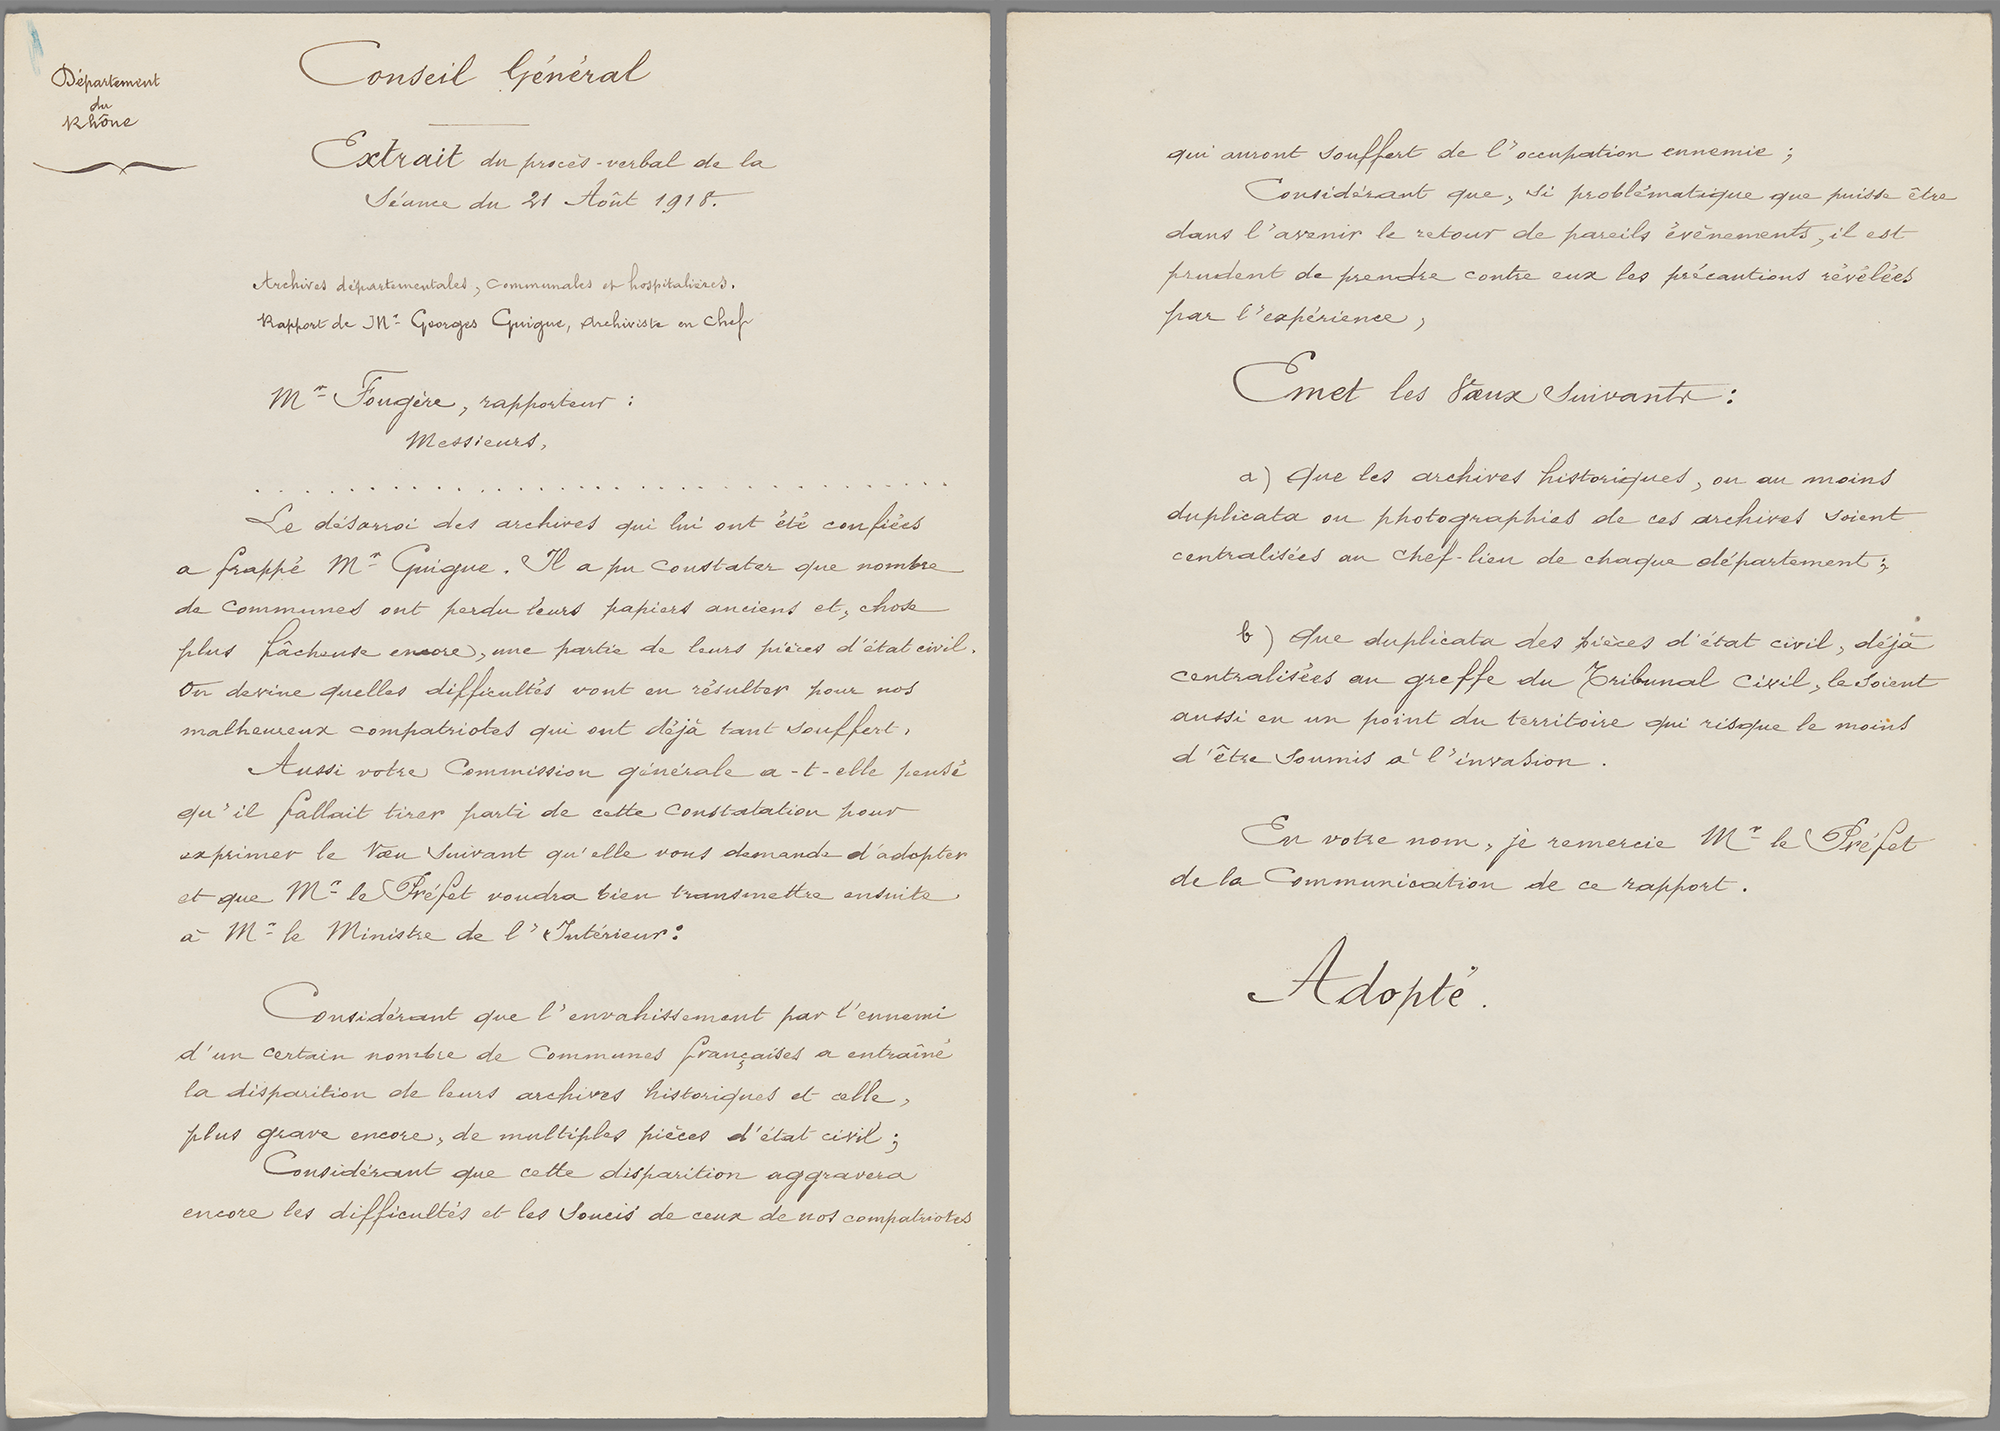 Département
du
Rhône
Conseil Général
Extrait du procès-verbal de la
Séance du 21 Août 1918.
Archives départementales, communales et hospitalières.
Rapport de Mr Georges Guigue, Archiviste en Chef
Mr Fougère, rapporteur :
Messieurs,
. . . . . . . . . . . . . . . . . . . . . . . . . . . . . . .
Le désarroi des archives qui lui ont été confiées
a frappé Mr Guigue. Il a pu constater que nombre
de communes ont perdu leurs papiers anciens et, chose
plus fâcheuse encore, une partie de leurs pièces d'état civil.
On devine quelles difficultés vont en résulter pour nos
malheureux compatriotes qui ont déjà tant souffert.
Aussi votre Commission générale a-t-elle pensé
qu'il fallait tirer parti de cette constatation pour
exprimer le Vœu suivant qu'elle vous demande d'adopter
et que Mr le Préfet voudra bien transmettre ensuite
à Mr le Ministre de l'Intérieur :
Considérant que l'envahissement par l'ennemi
d'un certain nombre de Communes françaises a entraîné
la disparition de leurs archives historiques et celle,
plus grave encore, de multiples pièces d'état civil ;
Considérant que cette disparition aggravera
encore les difficultés et les soucis de ceux de nos compatriotes
qui auront souffert de l'occupation ennemie ;
Considérant que, si problématique que puisse être
dans l'avenir le retour de pareils évènements, il est
prudent de prendre contre eux les précautions révélées
par l'expérience,
Emet les Vœux Suivants :
a) Que les archives historiques, ou au moins
duplicata ou photographies de ces archives soient
centralisées au chef-lieu de chaque département ;
b) Que duplicata des pièces d'état civil, déjà
centralisées au greffe du Tribunal Civil, le soient
aussi en un point du territoire qui risque le moins
d'être soumis à l'invasion .
En votre nom, je remercie Mr le Préfet
de la Communication de ce rapport .
Adopté .